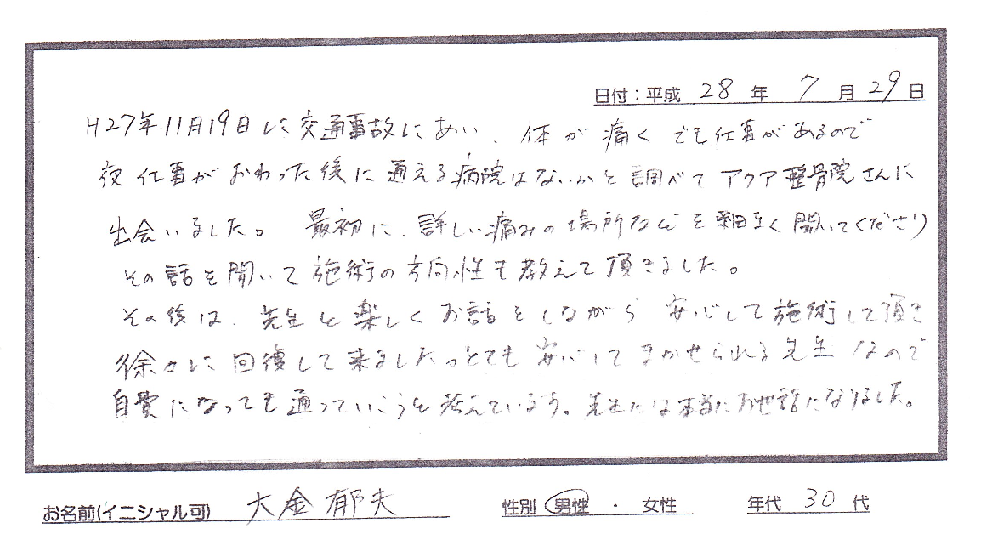 日付:平成 28 年 7 月 29 日
H27年11月19日に交通事故にあい、体が痛くでも仕事があるので
夜仕事がおわった後に通える病院はないかと調べてアクア整骨院さんに
出会いました。最初に、詳しい痛みの場所などを細まく聞いてくださり
その話を聞いて施術の方向性も教えて頂きました。
その後は、先生と楽しくお話をしながら安心して施術して頂き
徐々に回復して来ました。とても安心してまかせられる先生なので
自費になっても通っていこうと考えています。先生には本当にお世話になりました。
お名前(イニシャル可) 大金郁夫 性別 男性 ・ 女性 年代 30 代